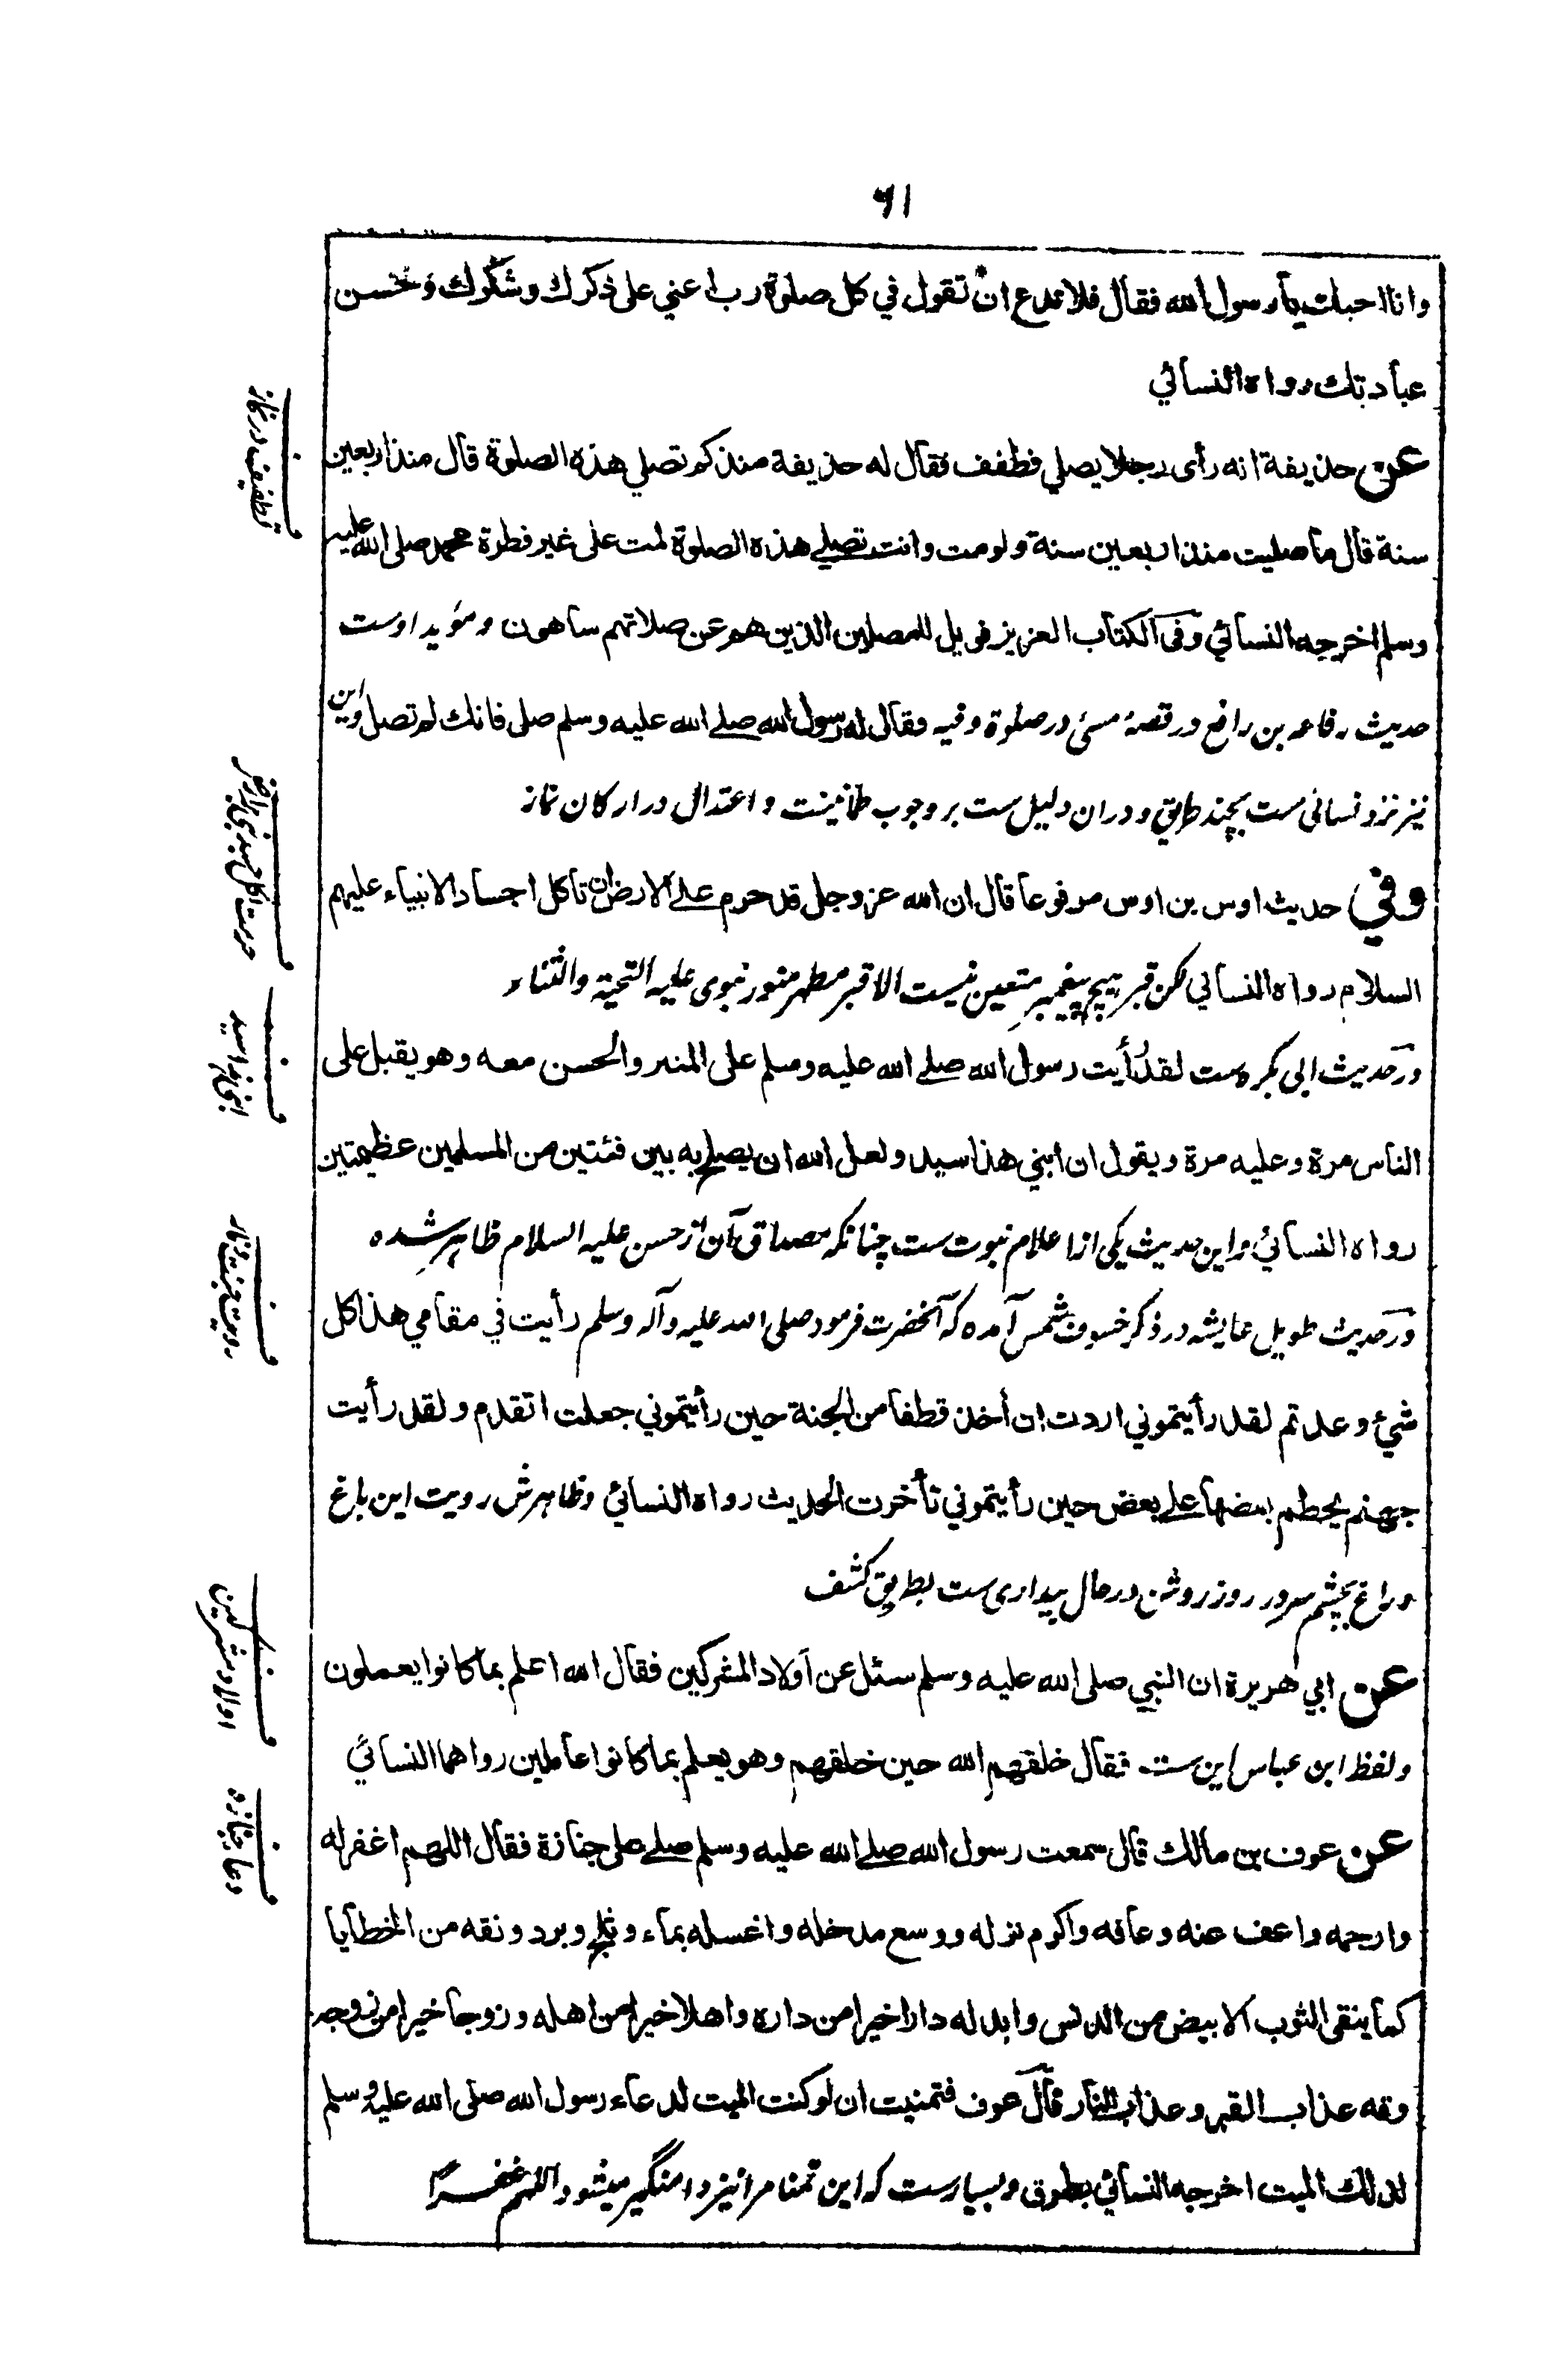 ۶۱
وانا احبك يا رسول الله فقال فلا تدع ان تقول في كل صلوة رب اعني على ذكرك وشكرك وحسن
عبادتك رواه النسائي
عن حذيفة انه رأى رجلا يصلي فطفف فقال له حذيفة منذ كم تصلي هذه الصلوة قال منذ اربعين
سنة قال ما صليت منذ اربعين سنة ولو مت وانت تصلي هذه الصلوة لمت على غير فطرة محمد صلى الله عليه
وسلم اخرجه النسائي وفى الكتاب العزيز فويل للمصلين الذين هم عن صلاتهم ساهون ومؤيد اوست
حديث رفاعه بن رافع در قصهٔ مسئ در صلوة وفيه فقال له رسول الله صلے الله عليه وسلم صلى فانك لم تصل واين
نيز نزد نسائى ست بچند طريق ودران دليل ست بر وجوب طمانينت و اعتدال در اركان نماز
وفي حديث اوس بن اوس مرفوعا قال ان الله عز وجل قد حرم علے الارض ان تاكل اجساد الانبياء عليهم
السلام رواه النسائي لكن قبر هيچ پيغمبر متعين نيست الا قبر مطهر منور نبوى عليه التحية والثناء
ودر حديث ابى بكره ست لقد رأيت رسول الله صلے الله عليه وسلم على المنبر والحسن معه وهو يقبل على
الناس مرة وعليه مرة ويقول ان ابني هذا سيد ولعل الله ان يصلح به بين فئتين من المسلمين عظيمتين
رواه النسائي واين حديث يكى از اعلام نبوت ست چنانكه مصداق آن از حسن عليه السلام ظاهر شده
ودر حديث طويل عايشه در ذكر خسوف شمس آمده كه آنحضرت فرمود صلى الله عليه وآله وسلم رأيت في مقامي هذا كل
شيئ وعدتم لقد رأيتموني اردت ان أخذ قطفا من الجنة حين رأيتموني جعلت اتقدم ولقد رأيت
جهنم يحطم بعضها علے بعض حين رأيتموني تأخرت الحديث رواه النسائي وظاهرش رويت اين باغ
وراغ بچشم سر در روز روشن در حال بيدارى ست بطريق كشف
عن ابي هريرة ان النبي صلى الله عليه وسلم سئل عن اولاد المشركين فقال الله اعلم بما كانوا يعملون
ولفظ ابن عباس اين ست فقال خلقهم الله حين خلقهم وهو يعلم بما كانوا عاملين رواهما النسائي
عن عوف بن مالك قال سمعت رسول الله صلے الله عليه وسلم صلے على جنازة فقال اللهم اغفر له
وارحمه واعف عنه وعافه واكرم نزله ووسع مدخله واغسله بماء وثلج وبرد ونقه من الخطايا
كما ينقى الثوب الابيض من الدنس وابدله دارا خيرا من داره واهلا خيرا من اهله وزوجا خيرا من زوجه
وقه عذاب القبر وعذاب النار قال عوف فتمنيت ان لو كنت الميت لدعاء رسول الله صلى الله عليه وسلم
لذلك الميت اخرجه النسائي بطرق وبسيارست كه اين تمنا مرا نيز دامنگير ميشود اللهم غفرًا
تطفيف در نماز
حرمت اكل جسد نبى بر ارض
ابنى هذا سيد
رويت جنت ونار
اولاد مشركين
دعا جنازه